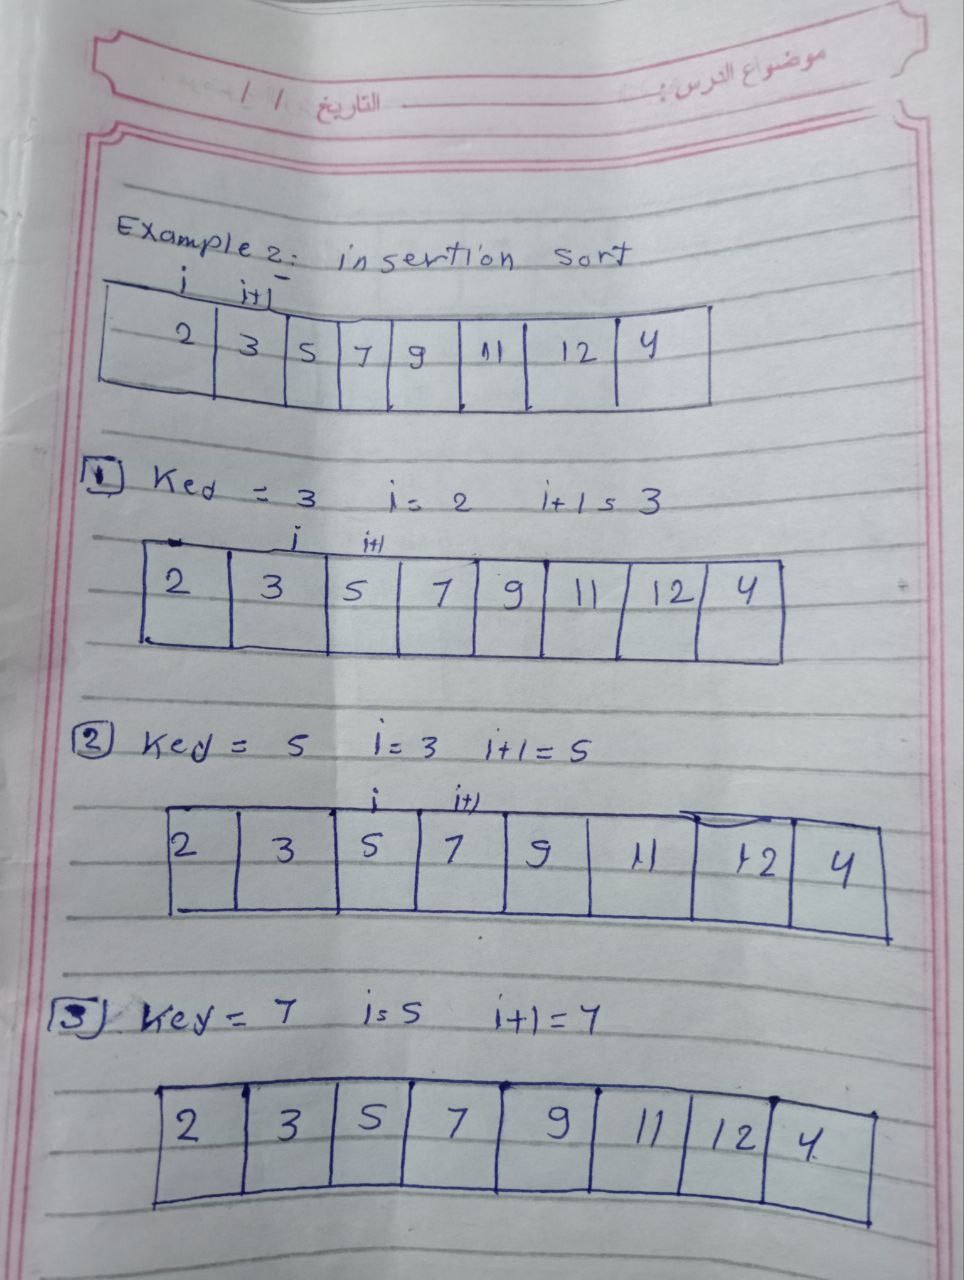 موضوع الدرس :
التاريخ / /
Example 2: insertion sort
i i+1
2 3 5 7 9 11 12 4
1 Key = 3 i = 2 i+1 = 3
i i+1
2 3 5 7 9 11 12 4
2 Key = 5 i = 3 i+1 = 5
i i+1
2 3 5 7 9 11 12 4
3 Key = 7 i = 5 i+1 = 7
2 3 5 7 9 11 12 4